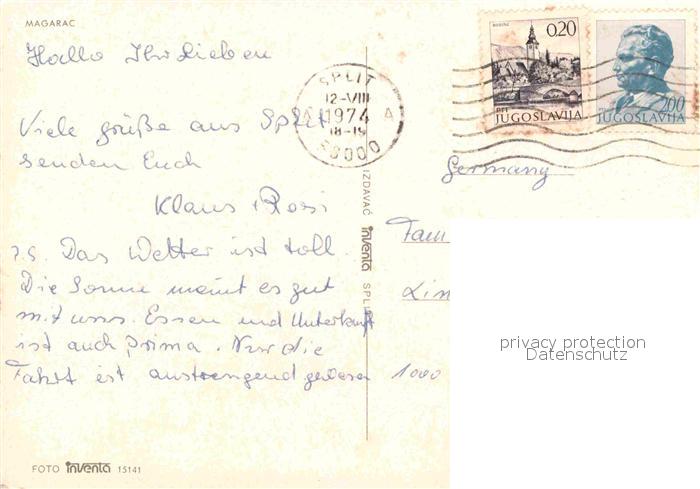 MAGARAC
Hallo Ihr Lieben
Viele grüße aus Split
senden Euch
Klaus + Rosi
P.S. Das Wetter ist toll
Die Sonne meint es gut
mit uns. Essen und Unterkunft
ist auch prima. Nur die
Fahrt ist anstrengend gewesen
FOTO inventa 15141
IZDAVAČ inventa SPLIT
SPLIT
12-VIII
1974
18-19
58000
A
0.20
JUGOSLAVIJA
2.00
JUGOSLAVIJA
Germany
Fam
Lin
1000
privacy protection
Datenschutz